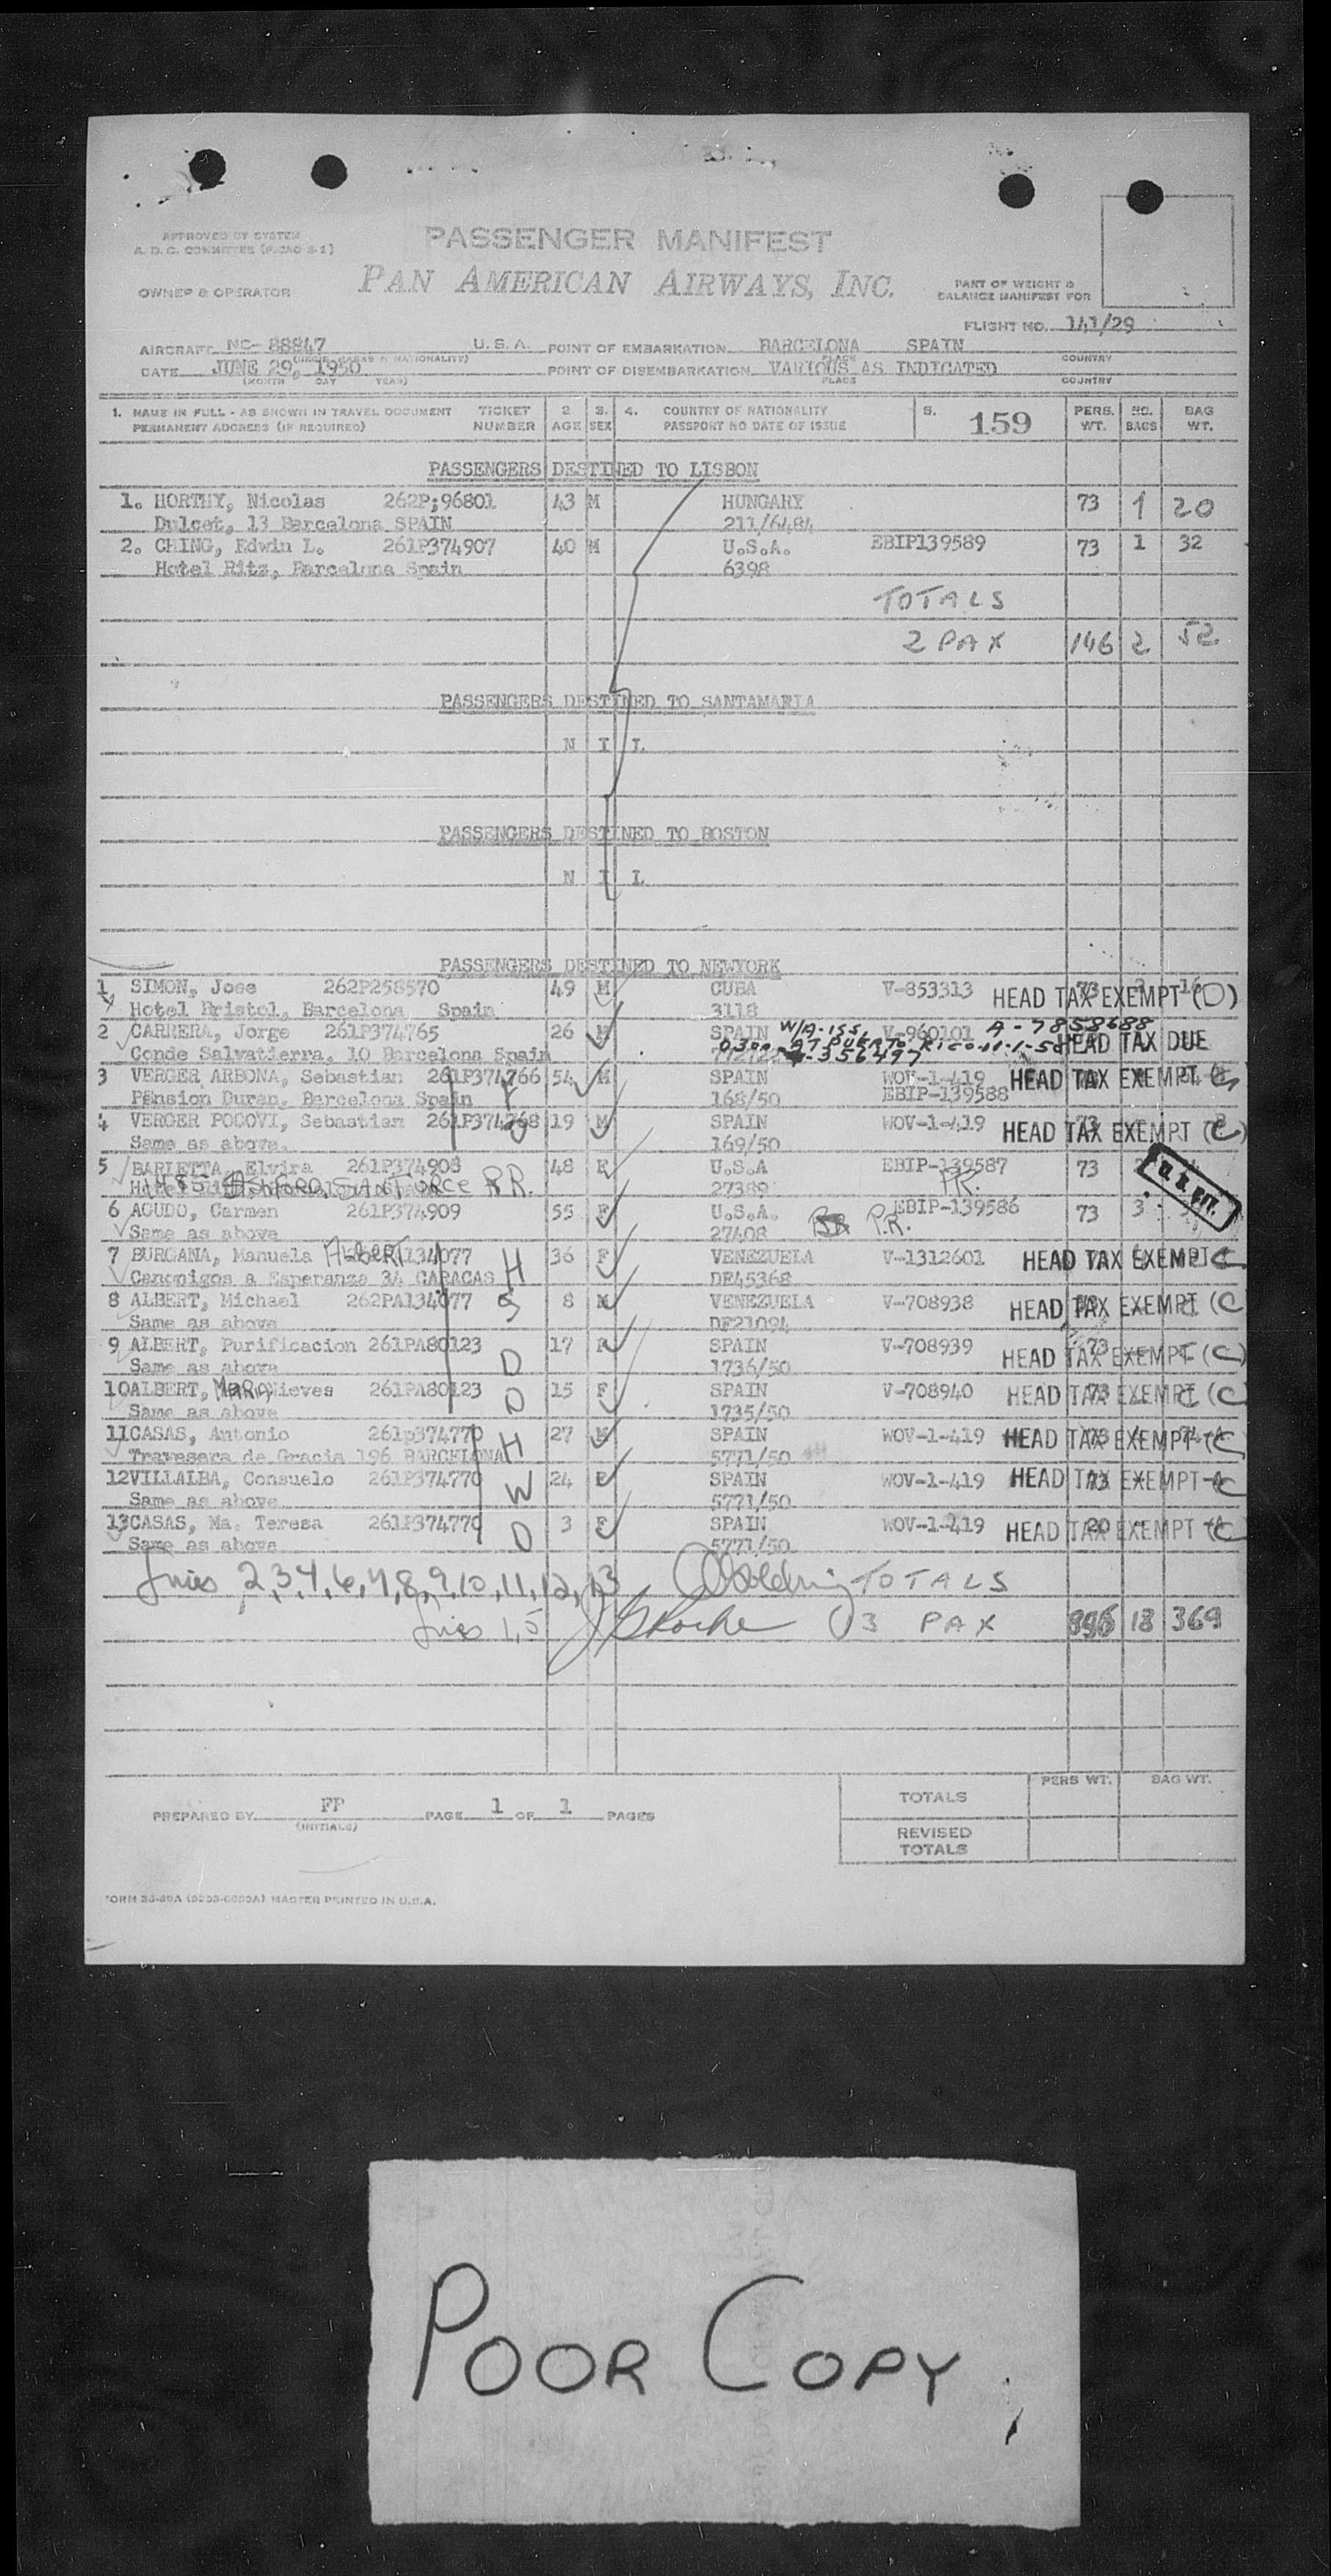 APPROVED BY SYSTEM
A. D. C. COMMITTEE (PICAO S-1)
PASSENGER MANIFEST
PAN AMERICAN AIRWAYS, INC.
OWNER & OPERATOR
PART OF WEIGHT &
BALANCE MANIFEST FOR
FLIGHT NO. 141/29
AIRCRAFT NC- 88847 U. S. A. POINT OF EMBARKATION BARCELONA SPAIN
PLACE COUNTRY
DATE JUNE 29, 1950 POINT OF DISEMBARKATION VARIOUS AS INDICATED
(MONTH DAY YEAR) PLACE COUNTRY
1. NAME IN FULL - AS SHOWN IN TRAVEL DOCUMENT TICKET 2. 3. 4. COUNTRY OF NATIONALITY 5. 159 PERS. NO. BAG
PERMANENT ADDRESS (IF REQUIRED) NUMBER AGE SEX PASSPORT NO DATE OF ISSUE WT. BAGS WT.
PASSENGERS DESTINED TO LISBON
1. HORTHY, Nicolas 262P;96801 43 M HUNGARY 73 1 20
Dulcet, 13 Barcelona SPAIN 211/6484
2. CHING, Edwin L. 261P374907 40 M U.S.A. EBIP139589 73 1 32
Hotel Ritz, Barcelona Spain 6398
TOTALS
2 PAX 146 2 52
PASSENGERS DESTINED TO SANTAMARIA
N I L
PASSENGERS DESTINED TO BOSTON
N I L
PASSENGERS DESTINED TO NEWYORK
1 SIMON, Jose 262P258570 49 M CUBA V-853313 73 HEAD TAX EXEMPT (D)
Hotel Bristol, Barcelona Spain 3118
2 CARRERA, Jorge 261P374765 26 M SPAIN W/A-ISS. V-960101 A-7858688
Conde Salvatierra, 10 Barcelona Spain 0300 AT PUERTO RICO 11-1-50 HEAD TAX DUE
-356497
3 VERGER ARBONA, Sebastian 261P374766 54 M SPAIN WOV-1-419 HEAD TAX EXEMPT
Pension Duran, Barcelona Spain F 168/50 EBIP-139588
4 VERGER POCOVI, Sebastian 261P374768 19 M SPAIN WOV-1-419 HEAD TAX EXEMPT (C)
Same as above. 169/50
5 BARLETTA, Elvira 261P374908 48 F U.S.A EBIP-139587 73
1485 ASHFORD, SANTURCE P.R. 27389 P.R. U. S. CIT.
6 AGUDO, Carmen 261P374909 55 F U.S.A. P.R. EBIP-139586 73 3
Same as above 27408
7 BURGANA, Manuela ALBERT 134077 H 36 F VENEZUELA V-1312601 HEAD TAX EXEMPT C
Canonigos a Esperanza 34 CARACAS DE45368
8 ALBERT, Michael 262PA134077 S 8 M VENEZUELA V-708938 HEAD TAX EXEMPT (C
Same as above DE21094
9 ALBERT, Purificacion 261PA80123 D 17 F SPAIN V-708939 73 HEAD TAX EXEMPT (C)
Same as above 1736/50
10 ALBERT, MARIA Nieves 261PA80123 D 15 F SPAIN V-708940 73 HEAD TAX EXEMPT (C)
Same as above 1735/50
11 CASAS, Antonio 261p374770 H 27 M SPAIN WOV-1-419 HEAD TAX EXEMPT (C
Travesera de Gracia 196 BARCELONA 5771/50
12 VILLALBA, Consuelo 261P374770 W 24 F SPAIN WOV-1-419 73 HEAD TAX EXEMPT C
Same as above 5771/50
13 CASAS, Ma. Teresa 261P374770 D 3 F SPAIN WOV-1-419 20 HEAD TAX EXEMPT (C
Same as above 5771/50
Lines 2,3,4,6,7,8,9,10,11,12,13 TOTALS
Lines 1,5 13 PAX 896 18 369
PREPARED BY FP PAGE 1 OF 1 PAGES
(INITIALS)
PERS WT. BAG WT.
TOTALS
REVISED
TOTALS
MASTER PRINTED IN U.S.A.
POOR COPY